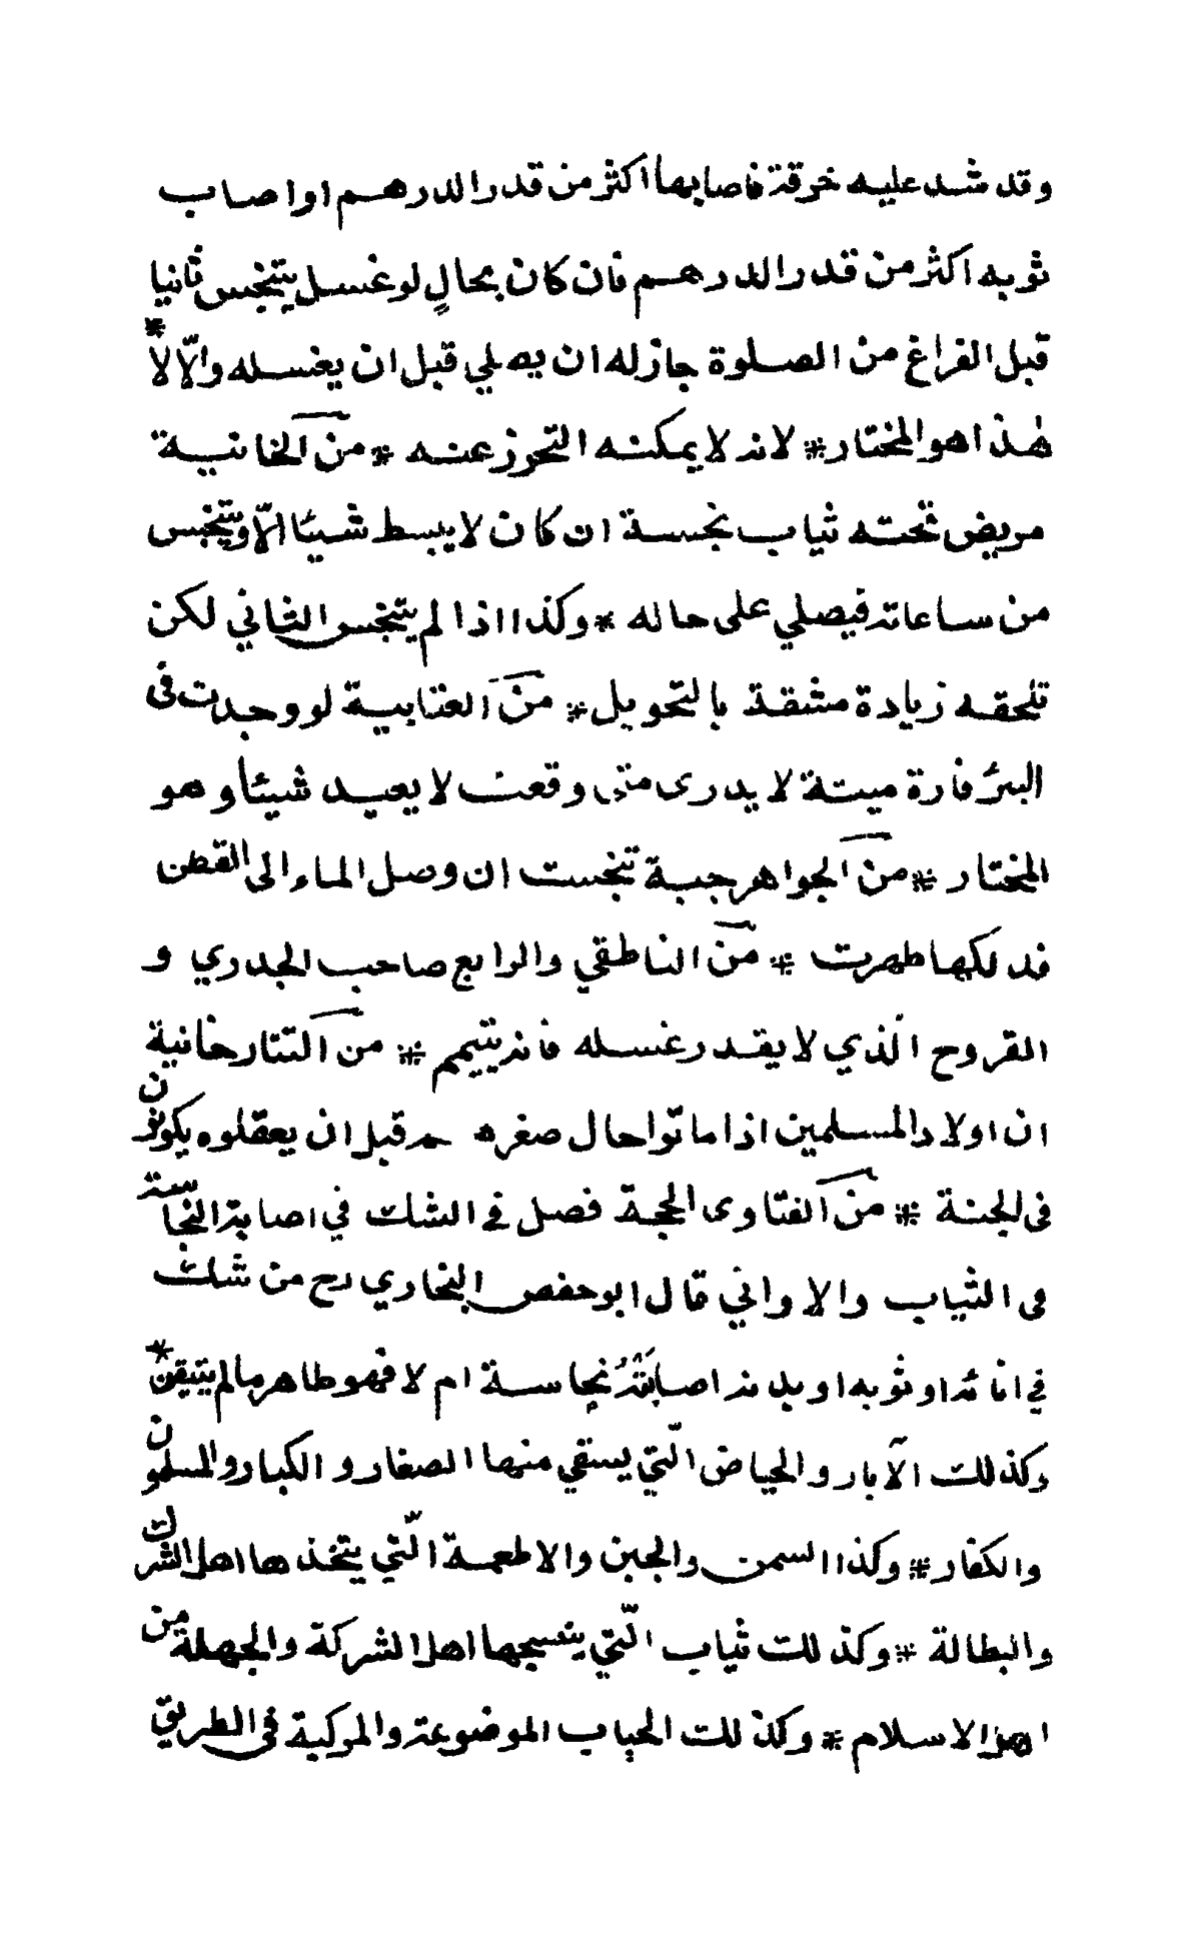 وقد شد عليه خرقة فاصابها اكثر من قدر الدرهم او اصاب
ثوبه اكثر من قدر الدرهم فان كان بحالٍ لو غسل يتنجس ثانيا
قبل الفراغ من الصلوة جاز له ان يصلي قبل ان يغسله والّا لاً *
هذا هو المختار * لانه لا يمكنه التحرز عنه * من الخانية
مريض تحته ثياب نجسة ان كان لا يبسط شيئا الّا ويتنجس
من ساعاته فيصلي على حاله * وكذا اذا لم يتنجس الثاني لكن
تلحقه زيادة مشقة بالتحويل * من العتابية لو وجدت فى
البئر فارة ميتة لا يدرى متى وقعت لا يعيد شيئا وهو
المختار * من الجواهر جبة تنجست ان وصل الماء الى القطن
فدلكها طهرت * من الناطقي والرابع صاحب الجدري و
القروح الّذي لا يقدر غسله فانه يتيمم * من التتارخانية
ان اولاد المسلمين اذا ماتوا حال صغرهم قبل ان يعقلوه يكونون
فى الجنة * من الفتاوى الحجة فصل فى الشك في اصابة النجاسة
فى الثياب والاواني قال ابو حفص البخاري رح من شك
في انائه او ثوبه او بدنه اصابَتْهُ نجاسة ام لا فهو طاهر ما لم يتيقن *
وكذلك الآبار والحياض الّتي يستقي منها الصغار والكبار والمسلمون
والكفار * وكذا السمن والجبن والاطعمة الّتي يتخذها اهل الشرك
والبطالة * وكذلك ثياب الّتي ينسجها اهل الشركة والجهلة من
اهل الاسلام * وكذلك الحباب الموضوعة والمركبة فى الطريق